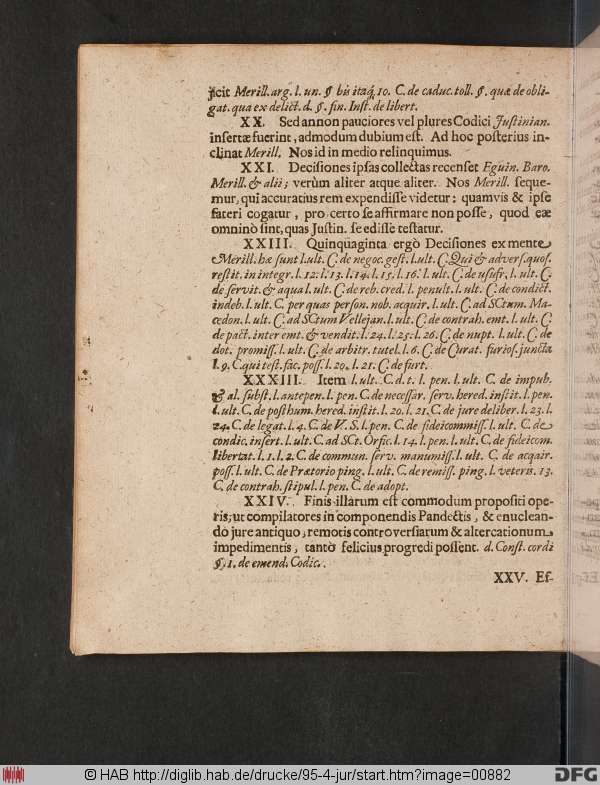 jicit Merill. arg. l. un. §. bis itaq́. 10. C. de caduc. toll. §. quæ de obli-
gat. qua ex delict. d. §. fin. Inst. de libert.
XX. Sed annon pauciores vel plures Codici Justinian.
insertæ fuerint, admodum dubium est. Ad hoc posterius in-
clinat Merill. Nos id in medio relinquimus.
XXI. Decisiones ipsas collectas recenset Eguin. Baro.
Merill. & alii; verùm aliter atque aliter. Nos Merill. seque-
mur, qui accuratius rem expendisse videtur: quamvis & ipse
fateri cogatur, pro certo se affirmare non posse, quod eæ
omninò sint, quas Justin. se edisse testatur.
XXIII. Quinquaginta ergò Decisiones ex mente
Merill. hæ sunt l. ult. C. de negoc. gest. l. ult. C. Qui & advers. quos.
restit. in integr. l. 12. l. 13. l. 14. l. 15. l. 16. l. ult. C. de usufr. l. ult. C.
de servit. & aqua l. ult. C. de reb. cred. l. penult. l. ult. C. de condict.
indeb. l. ult. C. per quas person. nob. acquir. l. ult. C. ad SCtum. Ma-
cedon. l. ult. C. ad SCtum Vellejan. l. ult. C. de contrah. emt. l. ult. C.
de pact. inter emt. & vendit. l. 24. l. 25. l. 26. C. de nupt. l. ult. C. de
dot. promiss. l. ult. C. de arbitr. tutel. l. 6. C. de Curat. furios. junctâ
l. 9. C. qui test. fac. poss. l. 20. l. 21. C. de furt.
XXXIII. Item l. ult. C. d. t. l. pen. l. ult. C. de impub.
& al. subst. l. antepen. l. pen. C. de necessar. serv. hered. instit. l. pen.
l. ult. C. de posthum. hered. instit. l. 20. l. 21. C. de jure deliber. l. 23. l.
24. C. de legat. l. 4. C. de V. S. l. pen. C. de fideicommiss. l. ult. C. de
condic. insert. l. ult. C. ad SCt. Orfic. l. 14. l. pen. l. ult. C. de fideicom.
libertat. l. 1. l. 2. C. de commun. serv. manumiss. l. ult. C. de acqair.
poss. l. ult. C. de Prætorio ping. l. ult. C. de remiss. ping. l. veteris. 13.
C. de contrah. stipul. l. pen. C. de adopt.
XXIV. Finis illarum est commodum propositi ope-
ris, ut compilatores in componendis Pandectis, & enuclean-
do jure antiquo, remotis controversiarum & altercationum
impedimentis, tantò felicius progredi possent. d. Const. cordi
§. 1. de emend. Codic.
XXV. Ef-
© HAB http://diglib.hab.de/drucke/95-4-jur/start.htm?image=00882
DFG